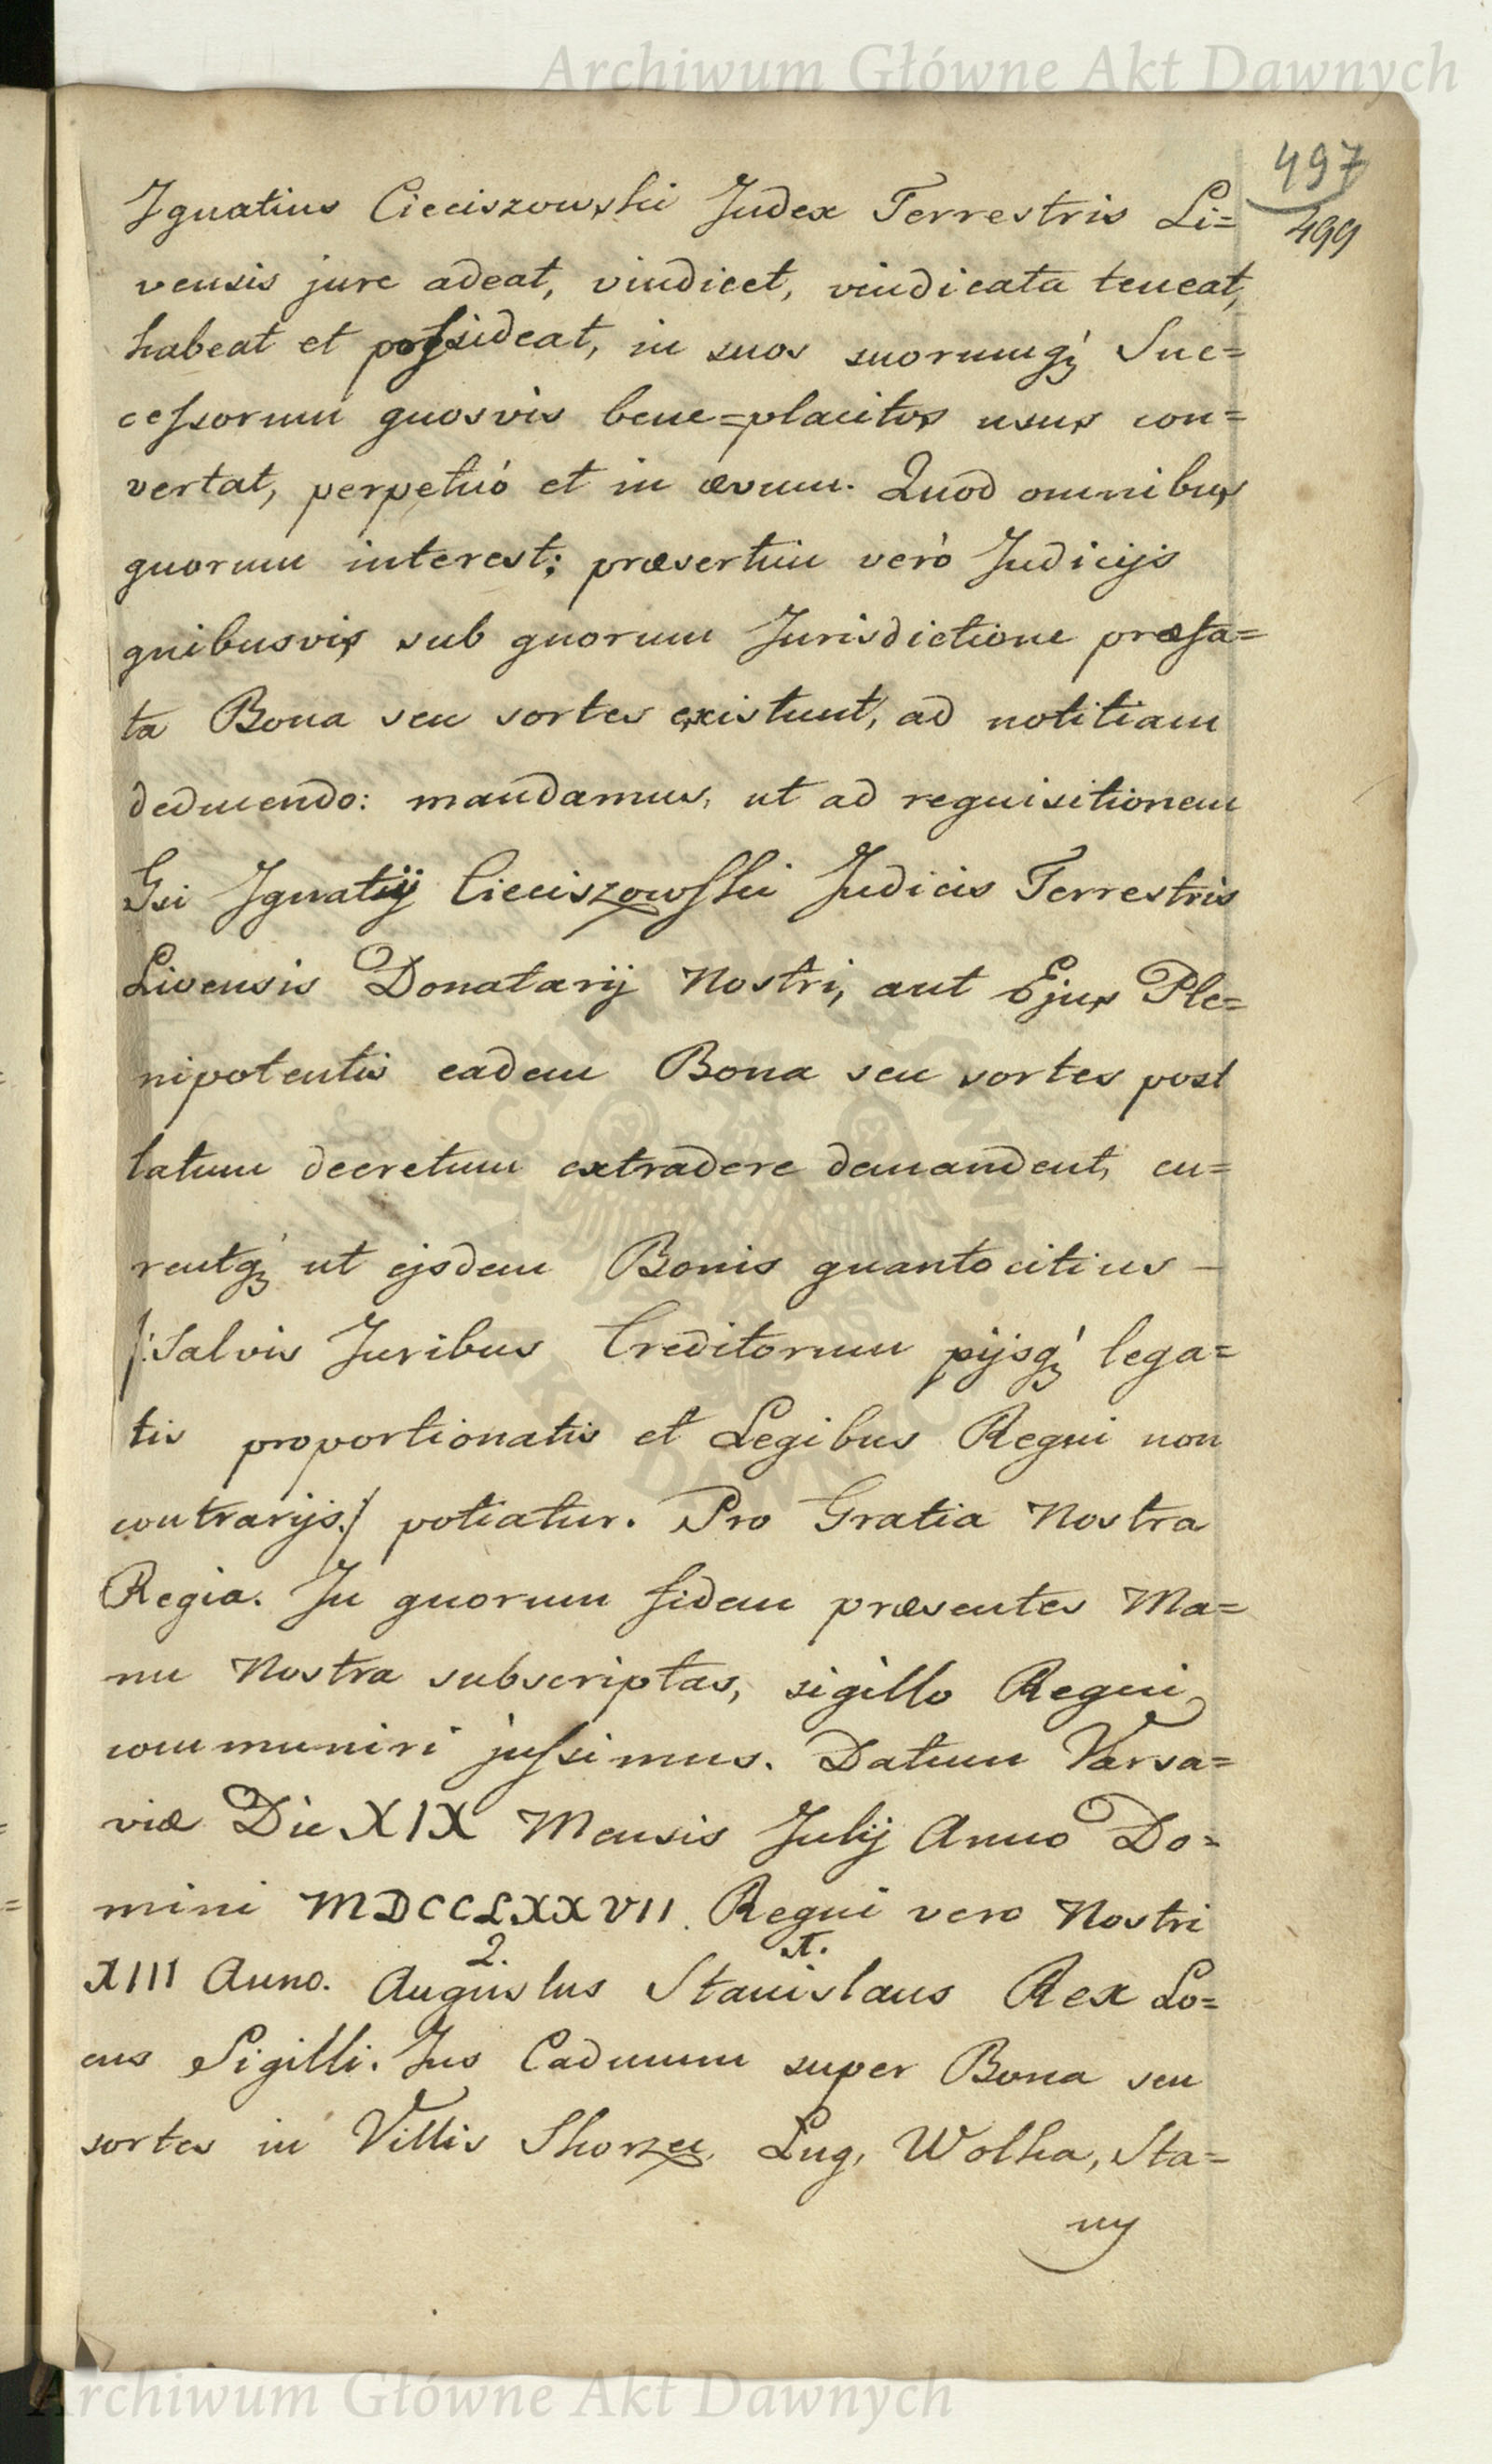 Archiwum Główne Akt Dawnych
497
499
Ignatius Cieciszowski Judex Terrestris Li=
vensis jure adeat, vindicet, vindicata teneat,
habeat et possideat, in suos suorumq; Suc=
cessorum quosvis bene=placitos usus con=
vertat, perpetuó et in ævum. Quod omnibus
quorum interest; præsertim verò Judicijs
quibusvis sub quorum Jurisdictione præfa=
ta Bona seu sortes existunt, ad notitiam
deducendo: mandamus, ut ad requisitionem
Gsi Ignatij Cieciszowski Judicis Terrestris
Livensis Donatarij Nostri, aut Ejus Ple=
nipotentis eadem Bona seu sortes post
latum decretum extradere demandent, cu=
rentq; ut ejsdem Bonis quanto citius –
/:Salvis Juribus Creditorum pijsq; lega=
tis proportionatis et Legibus Regni non
contrarijs:/ potiatur. Pro Gratia Nostra
Regia. In quorum fidem præsentes Ma=
nu Nostra subscriptas, sigillo Regni
communiri jussimus. Datum Varsa=
viæ Die XIX Mensis Julij Anno Do=
mini MDCCLXXVII. Regni vero Nostri
XIII Anno. 2. Augustus 1. Stanislaus Rex Lo=
cus Sigilli. Jus Caducum super Bona seu
sortes in Villis Skorzec, Ług, Wolka, Sta=
ny
ARCHIWUM GŁÓWNE AKT DAWNYCH
Archiwum Główne Akt Dawnych